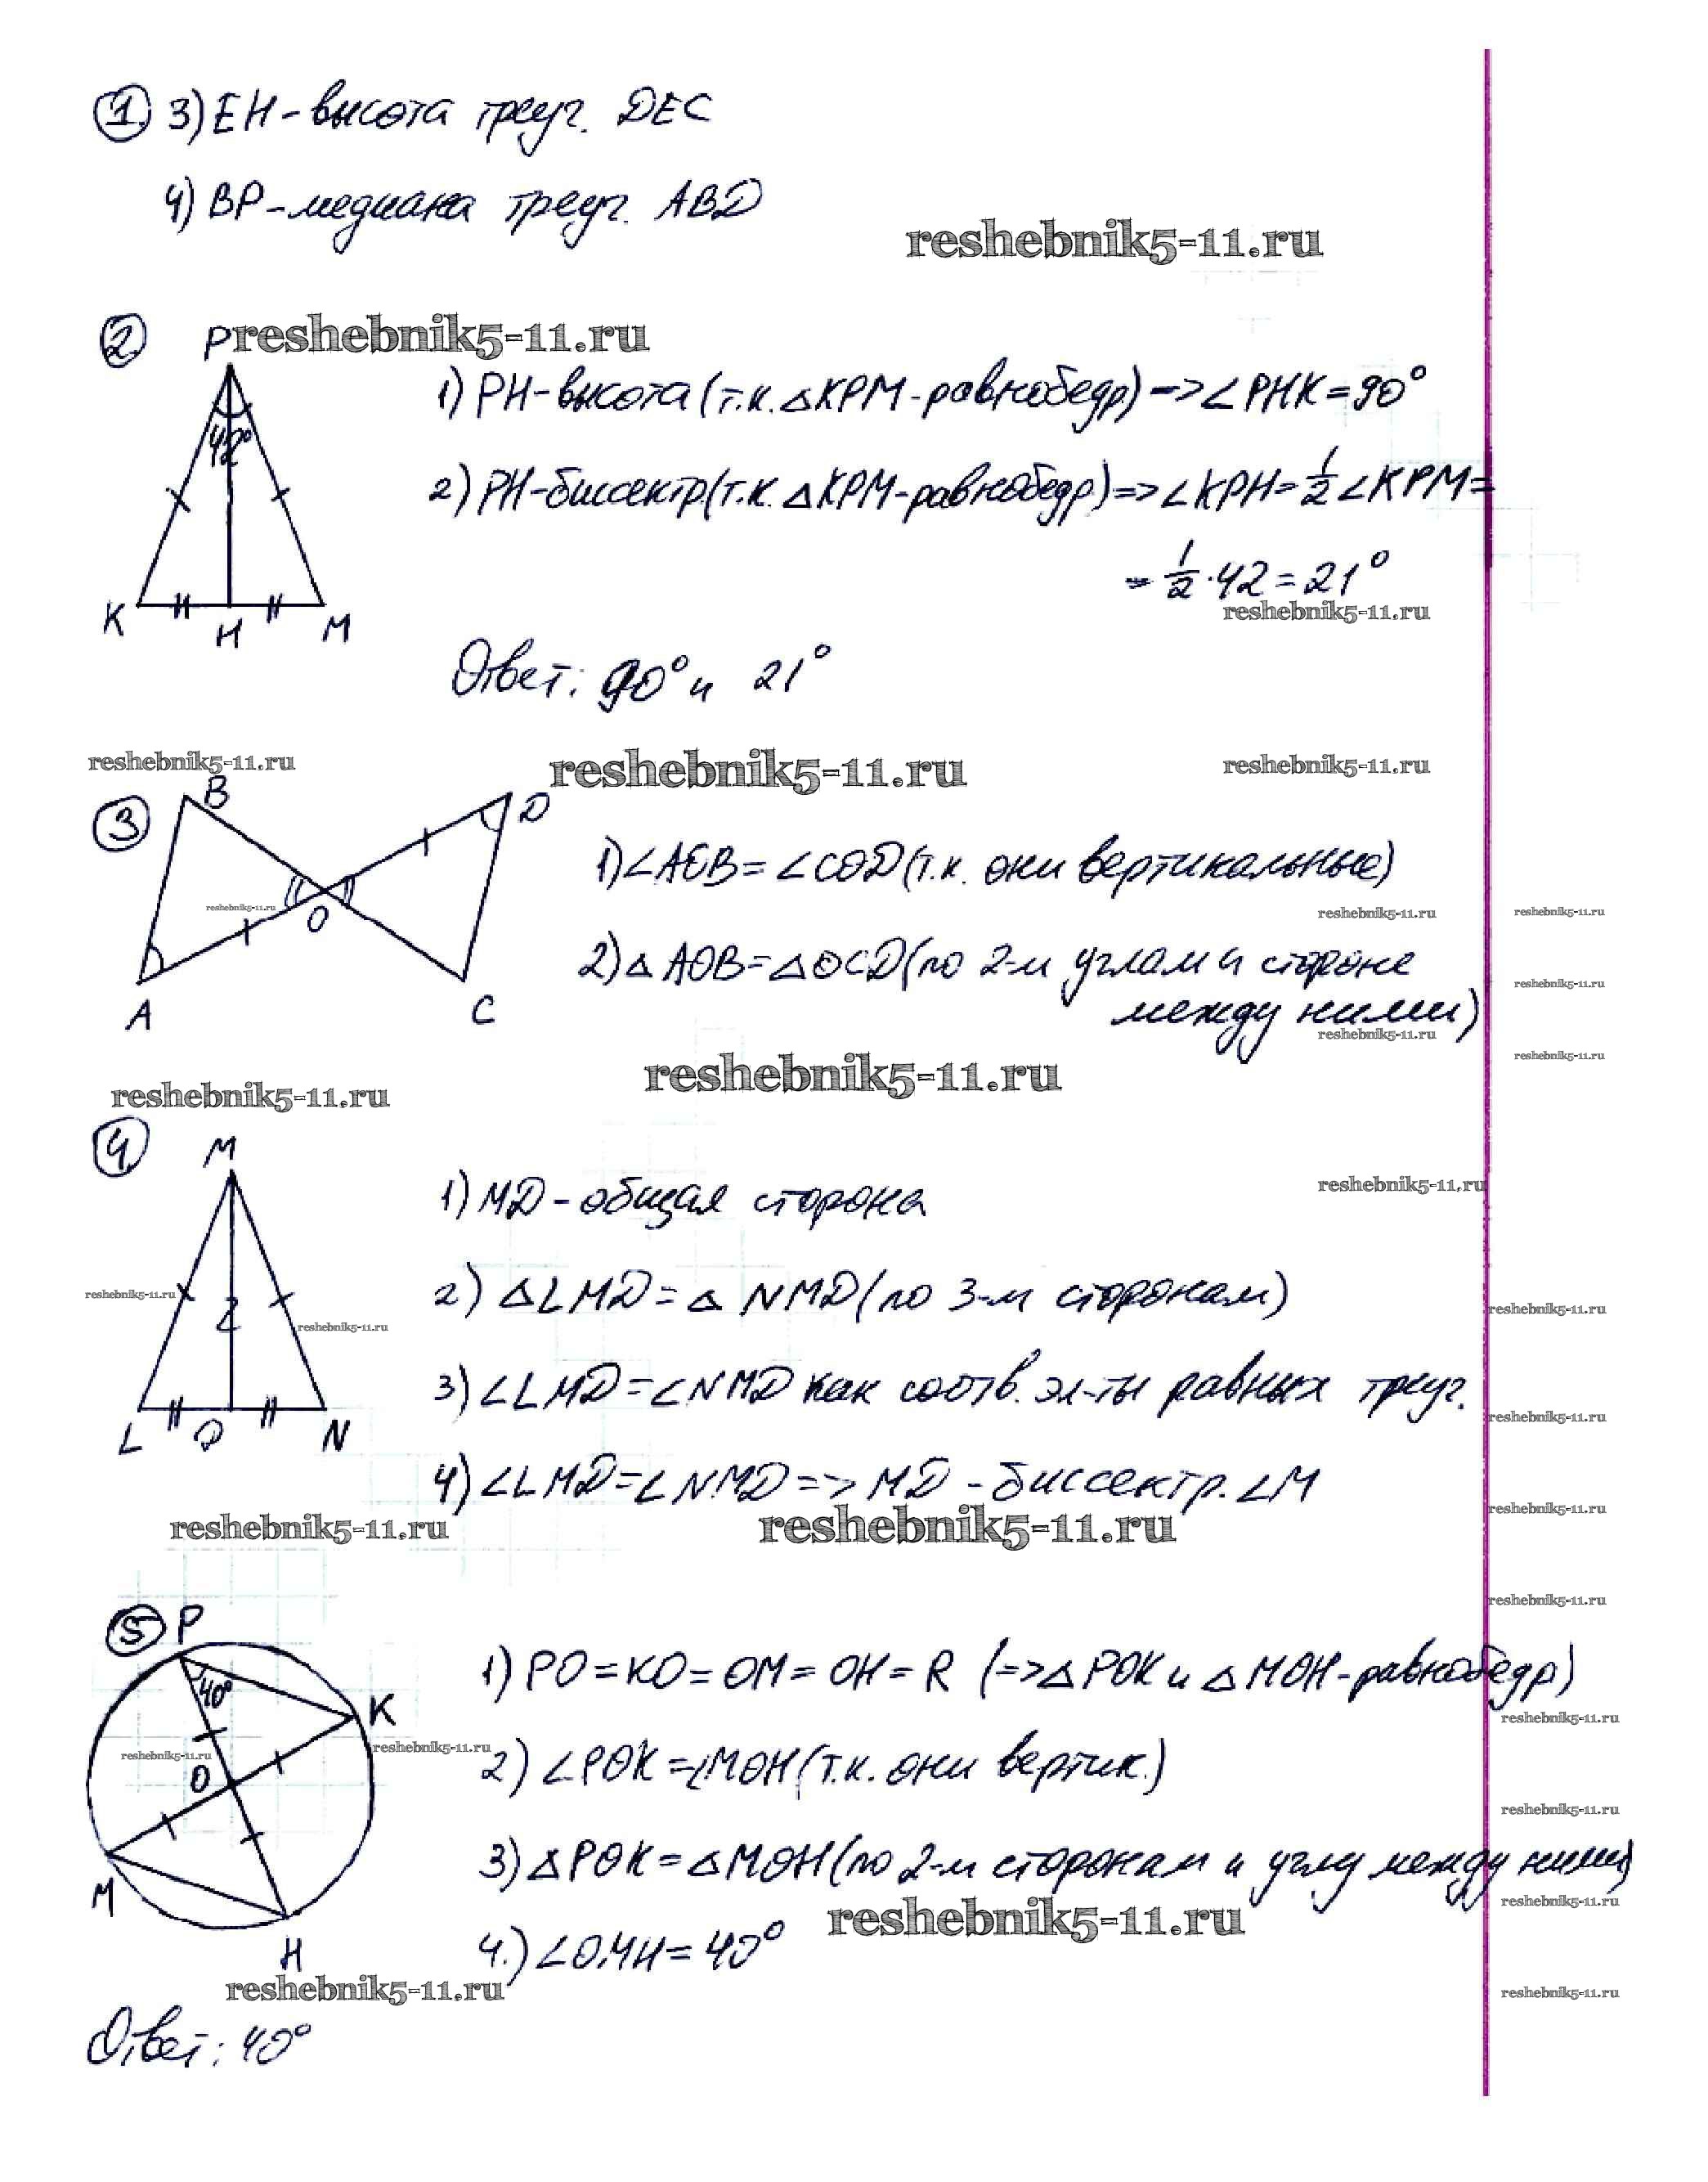 1. 3) EH - высота треуг. DEC
4) BP - медиана треуг. ABD
reshebnik5-11.ru
2. P reshebnik5-11.ru
1) PH - высота (т.к. △KPM - равнобедр) => ∠PHK = 90°
42°
2) PH - биссектр. (т.к. △KPM - равнобедр.) => ∠KPH = 1/2 ∠KPM =
= 1/2 · 42 = 21°
K H M
reshebnik5-11.ru
Ответ: 90° и 21°
reshebnik5-11.ru reshebnik5-11.ru reshebnik5-11.ru
3. B D
1) ∠AOB = ∠COD (т.к. они вертикальные)
reshebnik5-11.ru O reshebnik5-11.ru reshebnik5-11.ru
2) △AOB = △OCD (по 2-м углам и стороне
reshebnik5-11.ru
A C между ними)
reshebnik5-11.ru reshebnik5-11.ru
reshebnik5-11.ru
reshebnik5-11.ru
4. M
1) MD - общая сторона
reshebnik5-11.ru
2) △LMD = △NMD (по 3-м сторонам)
reshebnik5-11.ru reshebnik5-11.ru
reshebnik5-11.ru
3) ∠LMD = ∠NMD как соотв. эл-ты равных треуг.
reshebnik5-11.ru
L D N
4) ∠LMD = ∠NMD => MD - биссектр. ∠M
reshebnik5-11.ru reshebnik5-11.ru reshebnik5-11.ru
reshebnik5-11.ru
5. P
1) PO = KO = OM = OH = R (=> △POK и △MOH - равнобедр)
40°
K
reshebnik5-11.ru
reshebnik5-11.ru reshebnik5-11.ru
O
2) ∠POK = ∠MOH (т.к. они вертик.)
reshebnik5-11.ru
3) △POK = △MOH (по 2-м сторонам и углу между ними)
M
reshebnik5-11.ru reshebnik5-11.ru
4.) ∠OMH = 40°
H
reshebnik5-11.ru reshebnik5-11.ru
Ответ: 40°